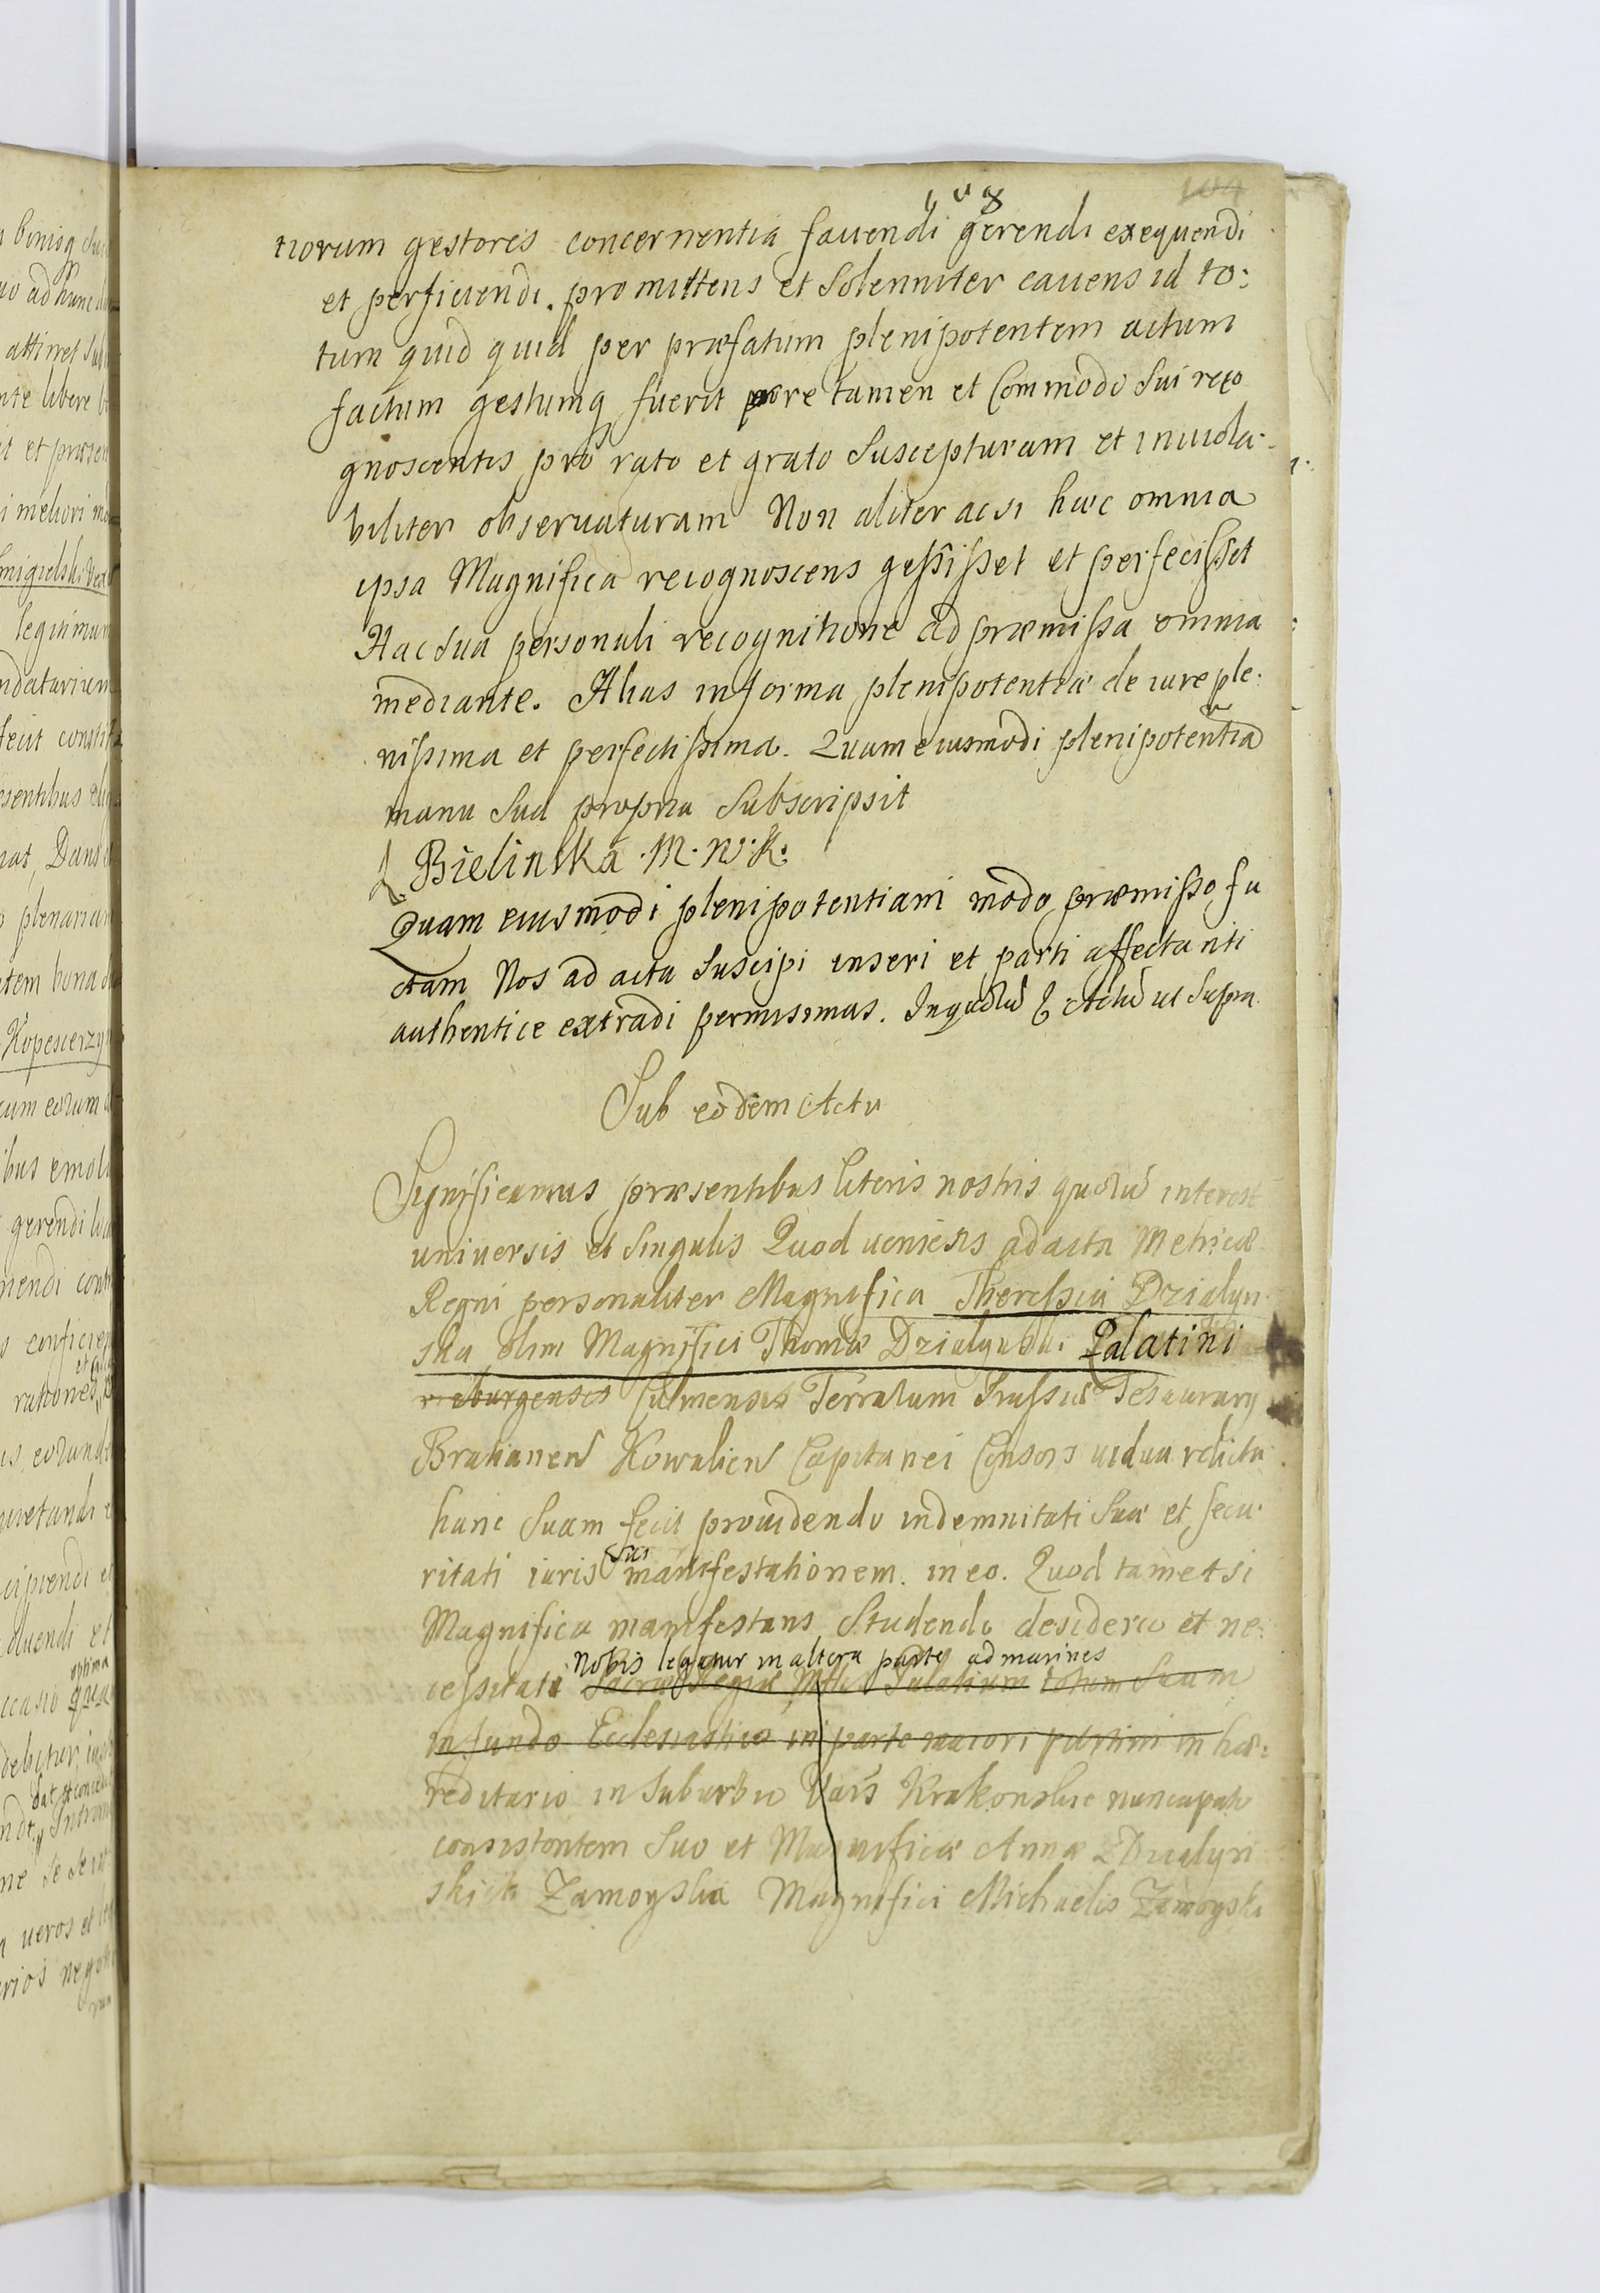 tiorum gestores concernentia fauendi gerendi exequendi
et perficiendi. promittens et Solenniter cauens id to:
tum quid quid per præfatum plenipotentem actum
factum gestumq fuerit pro re tamen et Commodo Sui reco
gnoscentis pro rato et grato Suscepturam et inuiola-
biliter obseruaturam Non aliter ac si hæc omnia
ipsa Magnifica recognoscens gessisset et perfecisset
Hac sua personali recognitione ad præmissa omnia
mediante. Alias in forma plenipotentiæ de iure ple:
nissima et perfectissima. Quam eiusmodi plenipotentia
manu Sua propria Subscripsit
L. Bielinska M. N. K.
Quam eiusmodi plenipotentiam modo præmisso fa
ctam Nos ad acta Suscipi inseri et parti affectanti
authentice extradi permisimus. In quorū & Actū ut Supra
Sub eodem Actu
Significamus præsentibus literis nostris quorū interest
universis et Singulis Quod ueniens ad acta Metricæ
Regni personaliter Magnifica Theressia Dzialyn
ska olim Magnifici Thomæ Dzialynski Palatini
Culmensis Terrarum Prussiæ Tesaurary
Bratianen Kowalien Capitanei Consors uidua relicta
hanc Suam fecit prouidendo indemnitati Suæ et secu
ritati iuris Sui manifestationem. in eo. Quod tametsi
Magnifica manifestans Studendo desiderio et ne:
Nobis legatur in altera parte ad marines
cessitati Sacræ Regiæ Mttis Palatium totum Suum
in fundo Ecclesiastico in parte maiori partim in hæ:
reditario in Suburbio Vars Krakowskie nuncupato
consistentem Suo et Magnificæ Annæ Dzialyn
skich Zamoyska Magnifici Michaelis Zamoyski